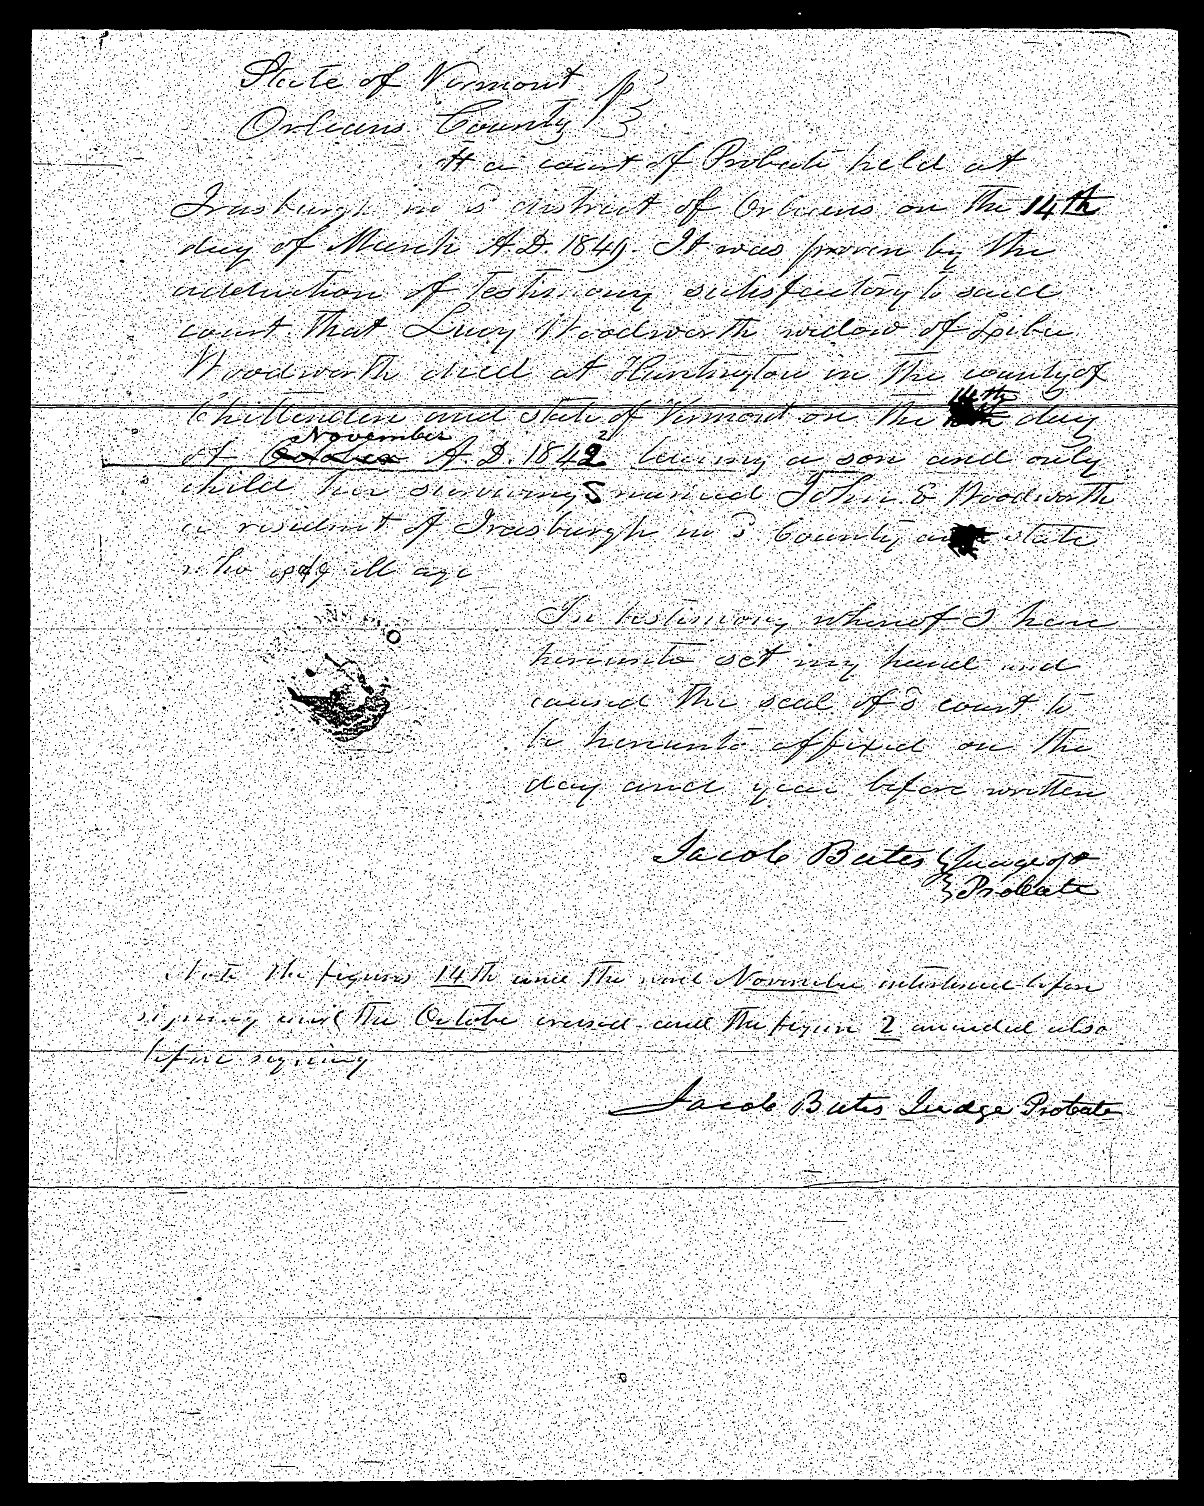 State of Vermont }
Orleans County } ss
At a court of Probate held at
Irasburgh in sd district of Orleans on the 14th
day of March A.D. 1849. It was proven by the
adduction of testimony satisfactory to said
court that Lucy Woodworth widow of
Woodworth died at Huntington in the county of
14th
Chittenden and state of Vermont on the day
November
of October A.D. 1842 leaving a son and only
child her surviving named John S Woodworth
a resident of Irasburgh in sd County and state
who is of full age
In testimony whereof I have
hereunto set my hand and
caused the seal of sd court to
be hereunto affixed on the
day and year before written
Jacob Bates } Judge of
} Probate
Note the figures 14th and the word November interlined before
signing and the Octobe erased and the figure 2 amended also
before signing
Jacob Bates Judge Probate